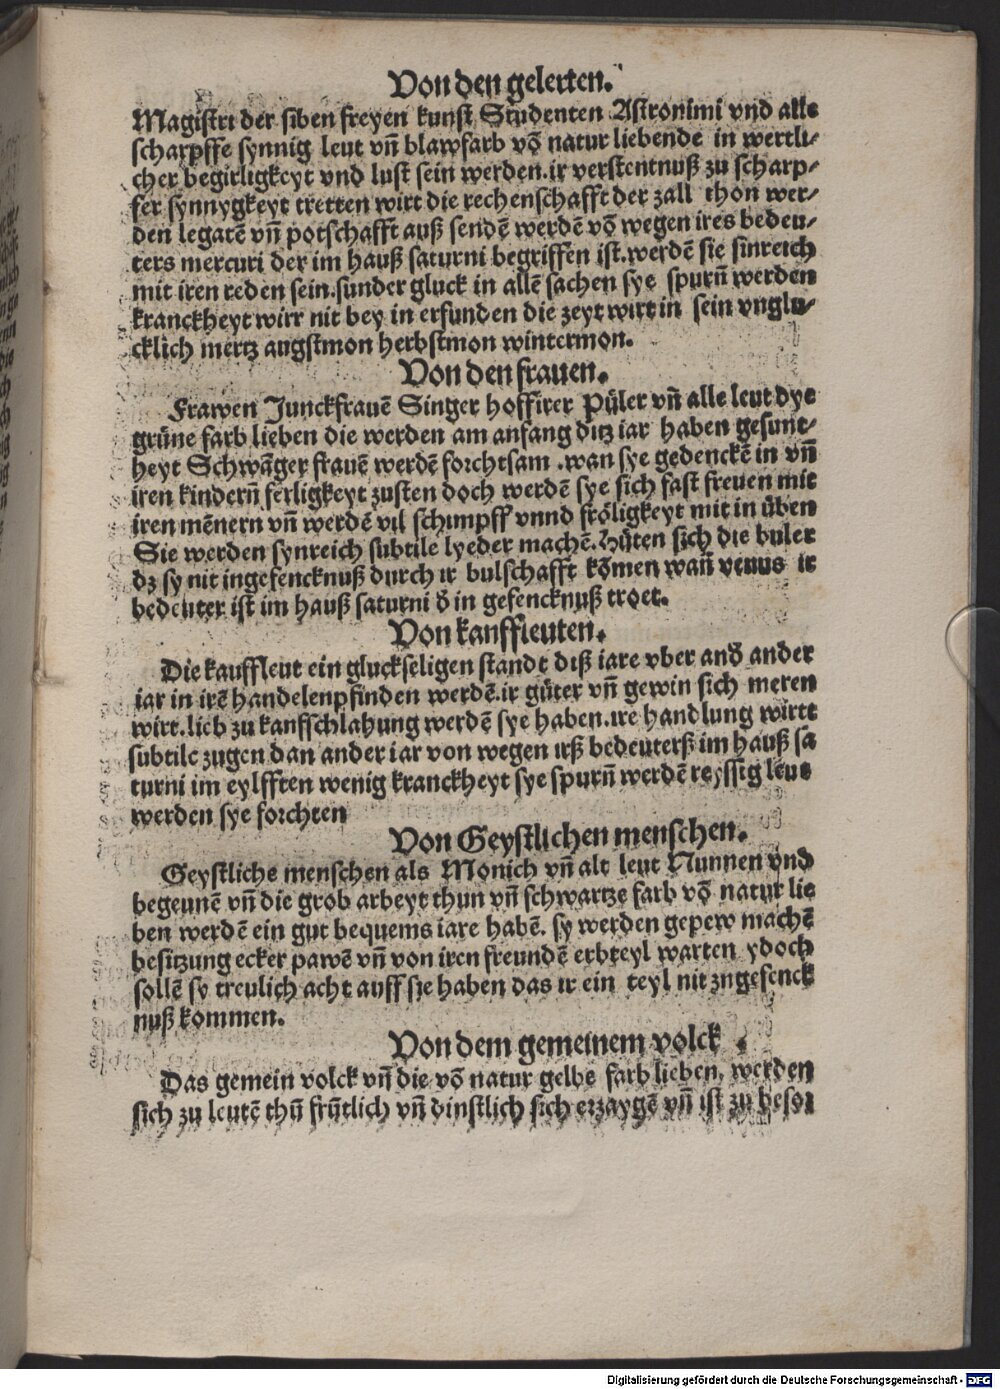 Von den gelerten.
Magistri der siben freyen kunst Studenten Astronimi vnd alle
scharpffe synnig leut vñ blawfarb vō natur liebende in wertli-
cher begirligkeyt vnd lust sein werden.ir verstentnuß zu scharp-
fer synnygkeyt tretten wirt die rechenschafft der zall thon wer-
den legatē vñ potschafft auß sendē werdē vō wegen ires bedeu-
ters mercuri der im hauß saturni begriffen ist.werdē sie sinreich
mit iren reden sein.sunder gluck in allē sachen sye spurñ werden
kranckheyt wirr nit bey in erfunden die zeyt wirt in sein vnglu-
cklich mertz augstmon herbstmon wintermon.
Von den frauen.
Frawen Junckfrauē Singer hoffirer Půler vñ alle leut dye
grüne farb lieben die werden am anfang ditz iar haben gesunt-
heyt Schwāger frauē werdē forchtsam .wan sye gedenckē in vñ
iren kinderñ ferligkeyt zusten doch werdē sye sich fast freuen mit
iren mēnern vñ werdē vil schimpff vnnd fröligkeyt mit in üben
Sie werden synreich subtile lyeder machē.Hüten sich die buler
dz sy nit in gefencknuß durch ir bulschafft kōmen wañ venus ir
bedeuter ist im hauß saturni d̄ in gefencknuß troet.
Von kanffleuten.
Die kauffleut ein gluckseligen standt diß iare vber and̄ ander
iar in irē handelenpfinden werdē.ir güter vñ gewin sich meren
wirt.lieb zu kanfschlahung werdē sye haben.ire handlung wirtt
subtile zugen dan ander iar von wegen irß bedeuterß im hauß sa
turni im eylfften wenig kranckheyt sye spurñ werdē reyssig leut
werden sye forchten
Von Geystlichen menschen.
Geystliche menschen als Monich vñ alt leut Nunnen vnd
begeunē vñ die grob arbeyt thun vñ schwartze farb vō natur lie
ben werdē ein gut bequems iare habē. sy werden gepew machē
besitzung ecker pawē vñ von iren freundē erbteyl warten ydoch
sollē sy treulich acht auff sie haben das ir ein teyl nit zngefenck
nuß kommen.
Von dem gemeinem volck .
Das gemein volck vñ die vō natur gelbe farb lieben, werden
sich zu leutē thũ frũtlich vñ dinstlich sich erzaygē vñ ist zu besor
Digitalisierung gefördert durch die Deutsche Forschungsgemeinschaft - DFG